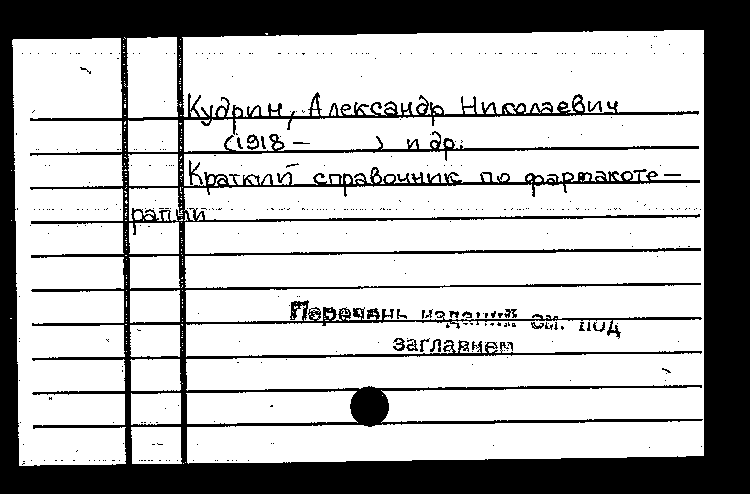 Кудрин, Александр Николаевич
(1918 –      ) и др.
Краткий справочник по фармакоте–
рапии
Перечень изданий см. под
заглавием